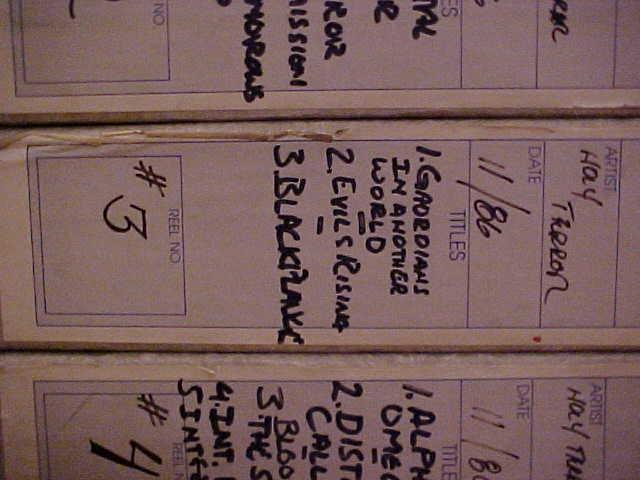 TITLES
TAL
ROR
MISSION
MOROWS
NO.
ARTIST
HOLY TERROR
DATE
11/86
TITLES
1. GAURDIANS
IN ANOTHER
WORLD
2. EVIL'S RISING
3. BLACKPLAUE
REEL NO.
# 3
ARTIST
HOLY TERR
DATE
11/86
TITLE
1. ALPH
OMEG
2. DIST
CALL
3. THE S
BLOO
4. INT.
5 INTE
REEL N
# 4